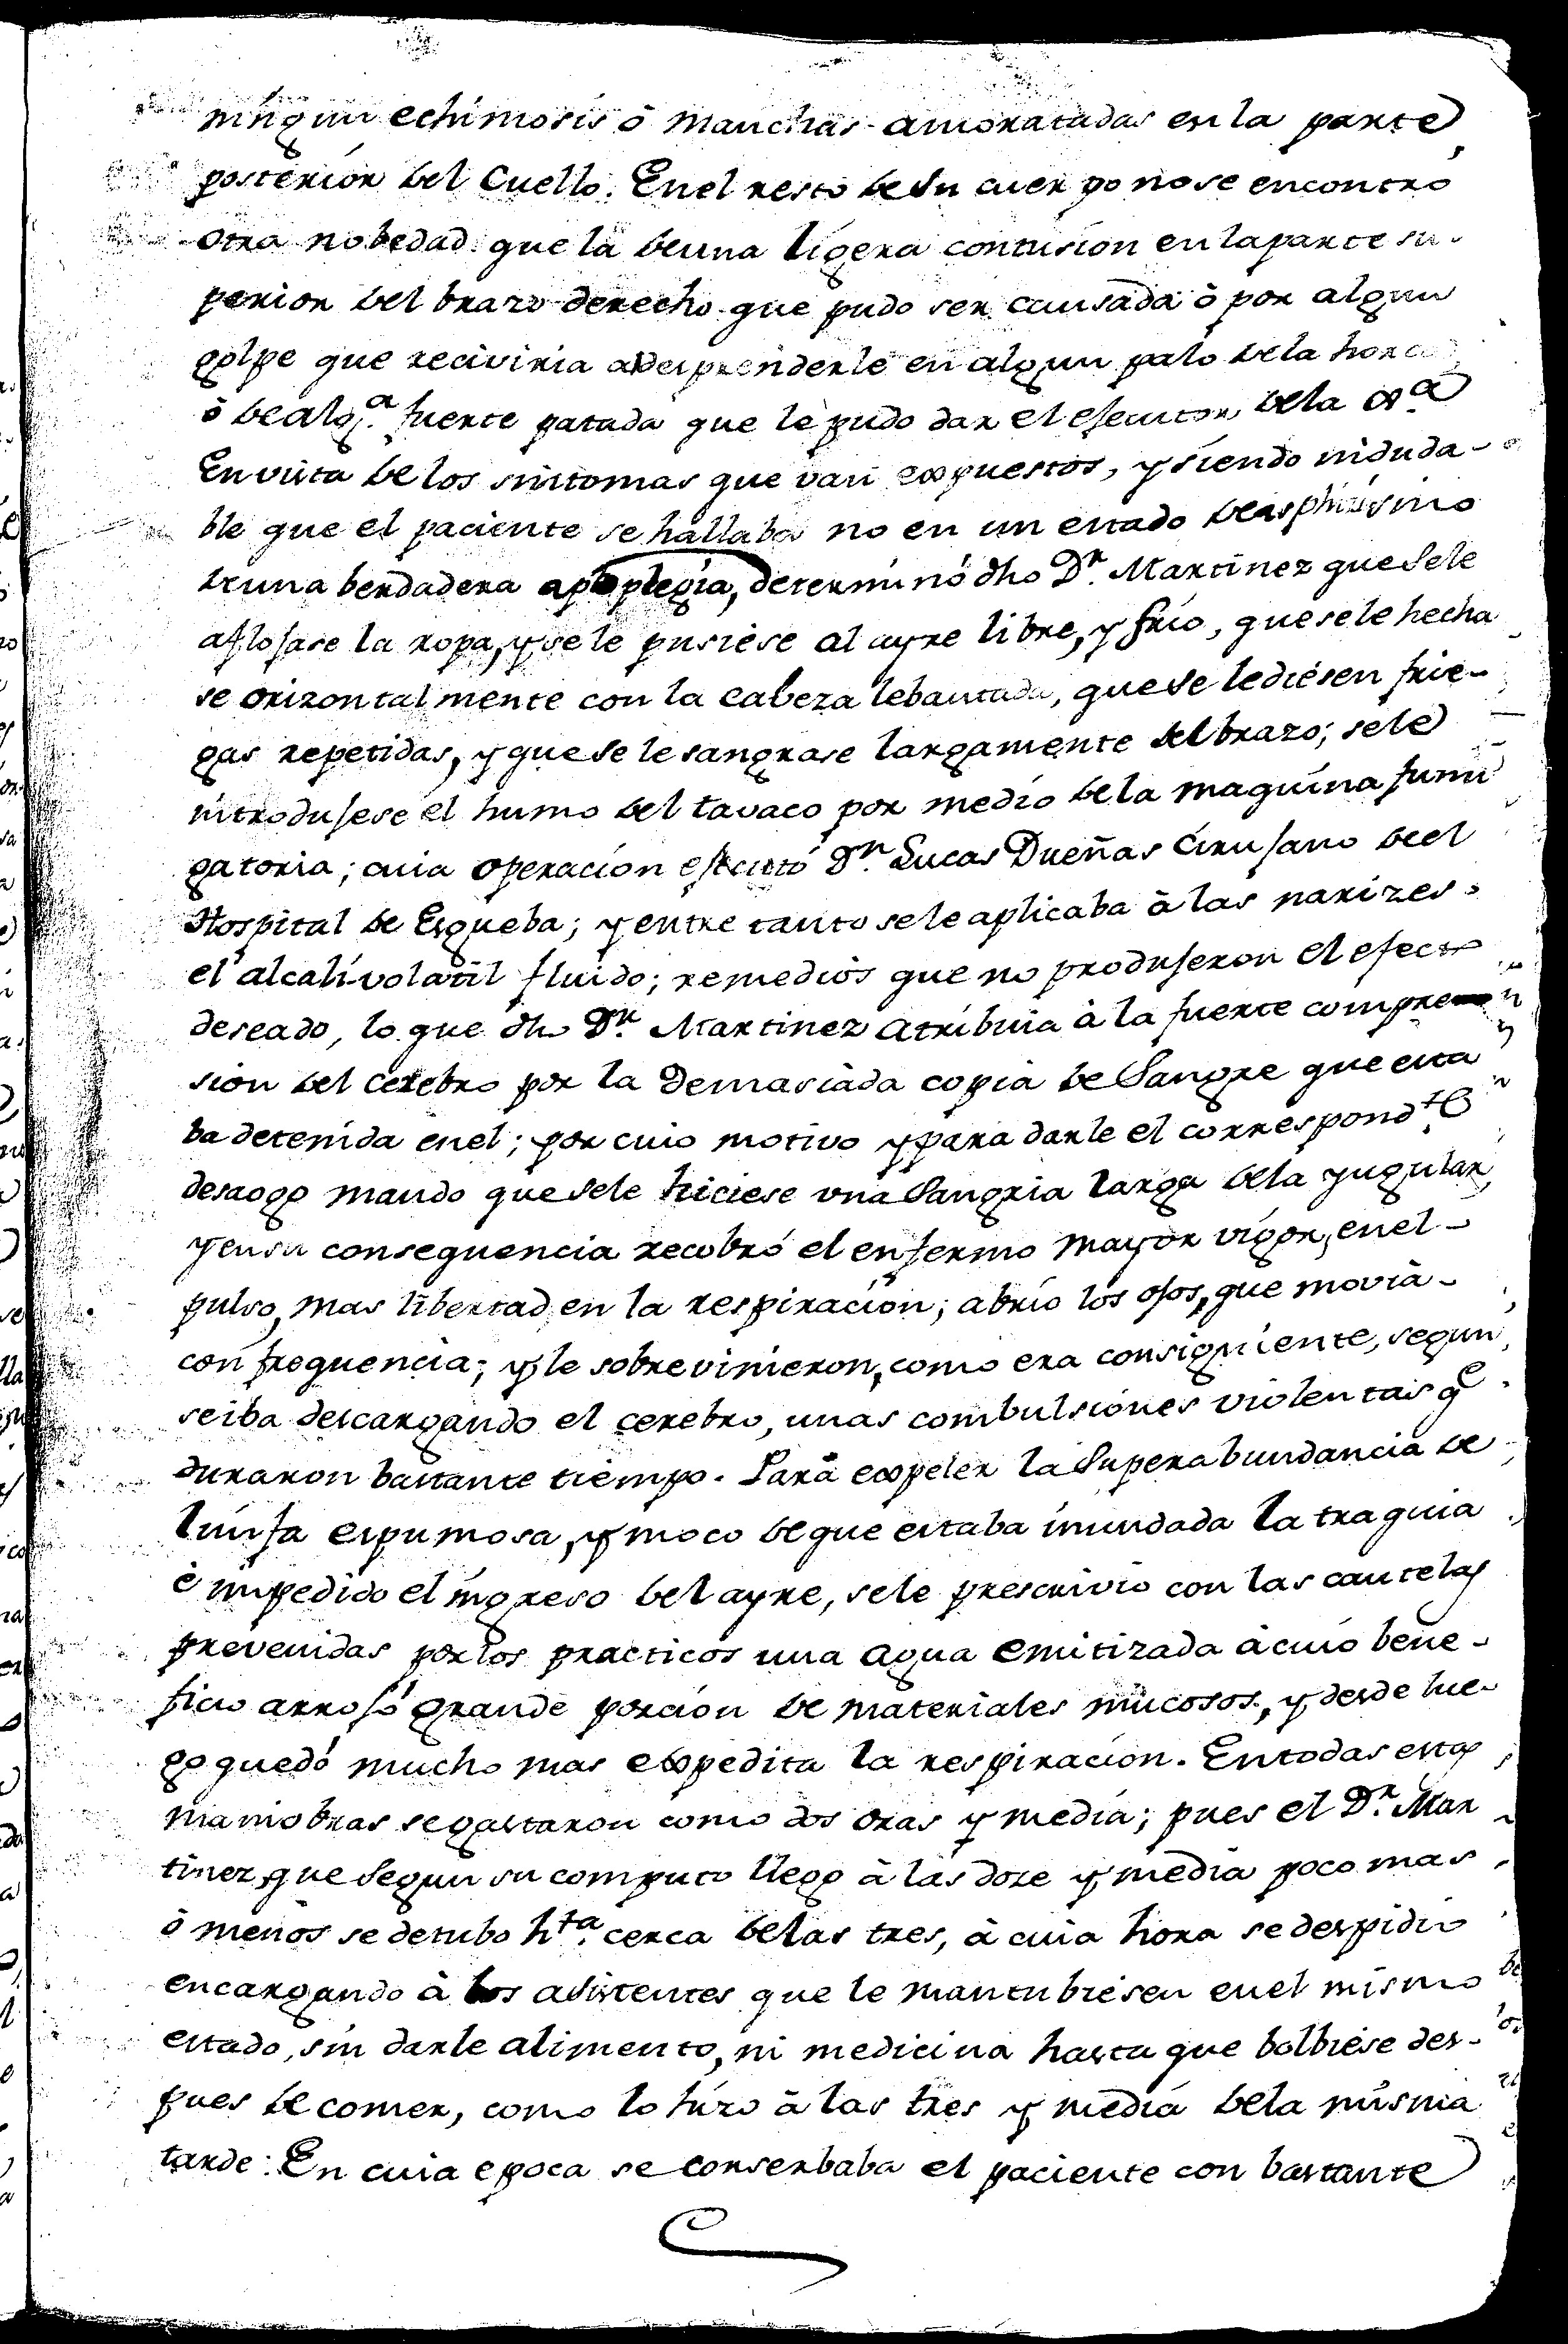 ningun echimosis ò manchas amoratadas en la parte
posterior del Cuello. En el resto de su cuerpo no se encontró
otra nobedad que la de una ligera contusion en la parte su-
perior del brazo derecho que pudo ser causada ò por algun
golpe que reciviria al desprenderle en algun palo de la horca
ò de alg.ª fuerte patada que le pudo dar el efecutor de la
En vista de los sintomas que van expuestos, y siendo induda-
ble que el paciente se hallaba no en un estado de
de una berdadera apoplegia, determinó dho D.r Martinez que se le
aflojase la ropa, y se le pusiese al ayre libre, y frio, que se le hecha
se orizontalmente con la cabeza lebantada, que se le diesen frie-
gas repetidas, y que se le sangrase largamente del brazo; se le
introdujese el humo del tavaco por medio de la maquina fumi
gatoria; cuia operacion efecutó D.n Lucas Dueñas Cirujano de el
Hospital de Esgueba; y entre tanto se le aplicaba à las narizes
el alcali-volatil fluido; remedios que no produjeron el efecto
deseado, lo que dho D.r Martinez atribuia à la fuerte compre
sion del celebro por la demasiada copia de Sangre que esta
ba detenida en el; por cuio motivo y para darle el correspond.te
desaogo mando que se le hiciese una Sangria larga de la yugular,
y en su consequencia recobró el enfermo mayor vigor, en el
pulso, mas libertad en la respiracion; abrio los ojos, que movia
con frequencia; y le sobrevinieron, como era consiguiente, segun
se iba descargando el cerebro, unas combulsiones violentas q.e
duraron bastante tiempo. Para expeler la Superabundancia de
linfa espumosa, y moco de que estaba inundada la traquia
è impedido el ingreso del ayre, se le prescrivio con las cautelas
prevenidas por los practicos una agua emitizada à cuio bene-
ficio arrojó grande porcion de materiales mucosos, y desde lue-
go quedó mucho mas expedita la respiracion. En todas estas
maniobras se gastaron como dos oras y media; pues el D.r Mar
tinez, que segun su computo llego à las doze y media poco mas
ò menos se detubo h.ta cerca de las tres, à cuia hora se despidio
encargando à los asistentes que le mantubiesen en el mismo
estado, sin darle alimento, ni medicina hasta que bolbiese des-
pues de comer, como lo hizo à las tres y media de la misma
tarde: En cuia epoca se conserbaba el paciente con bastante